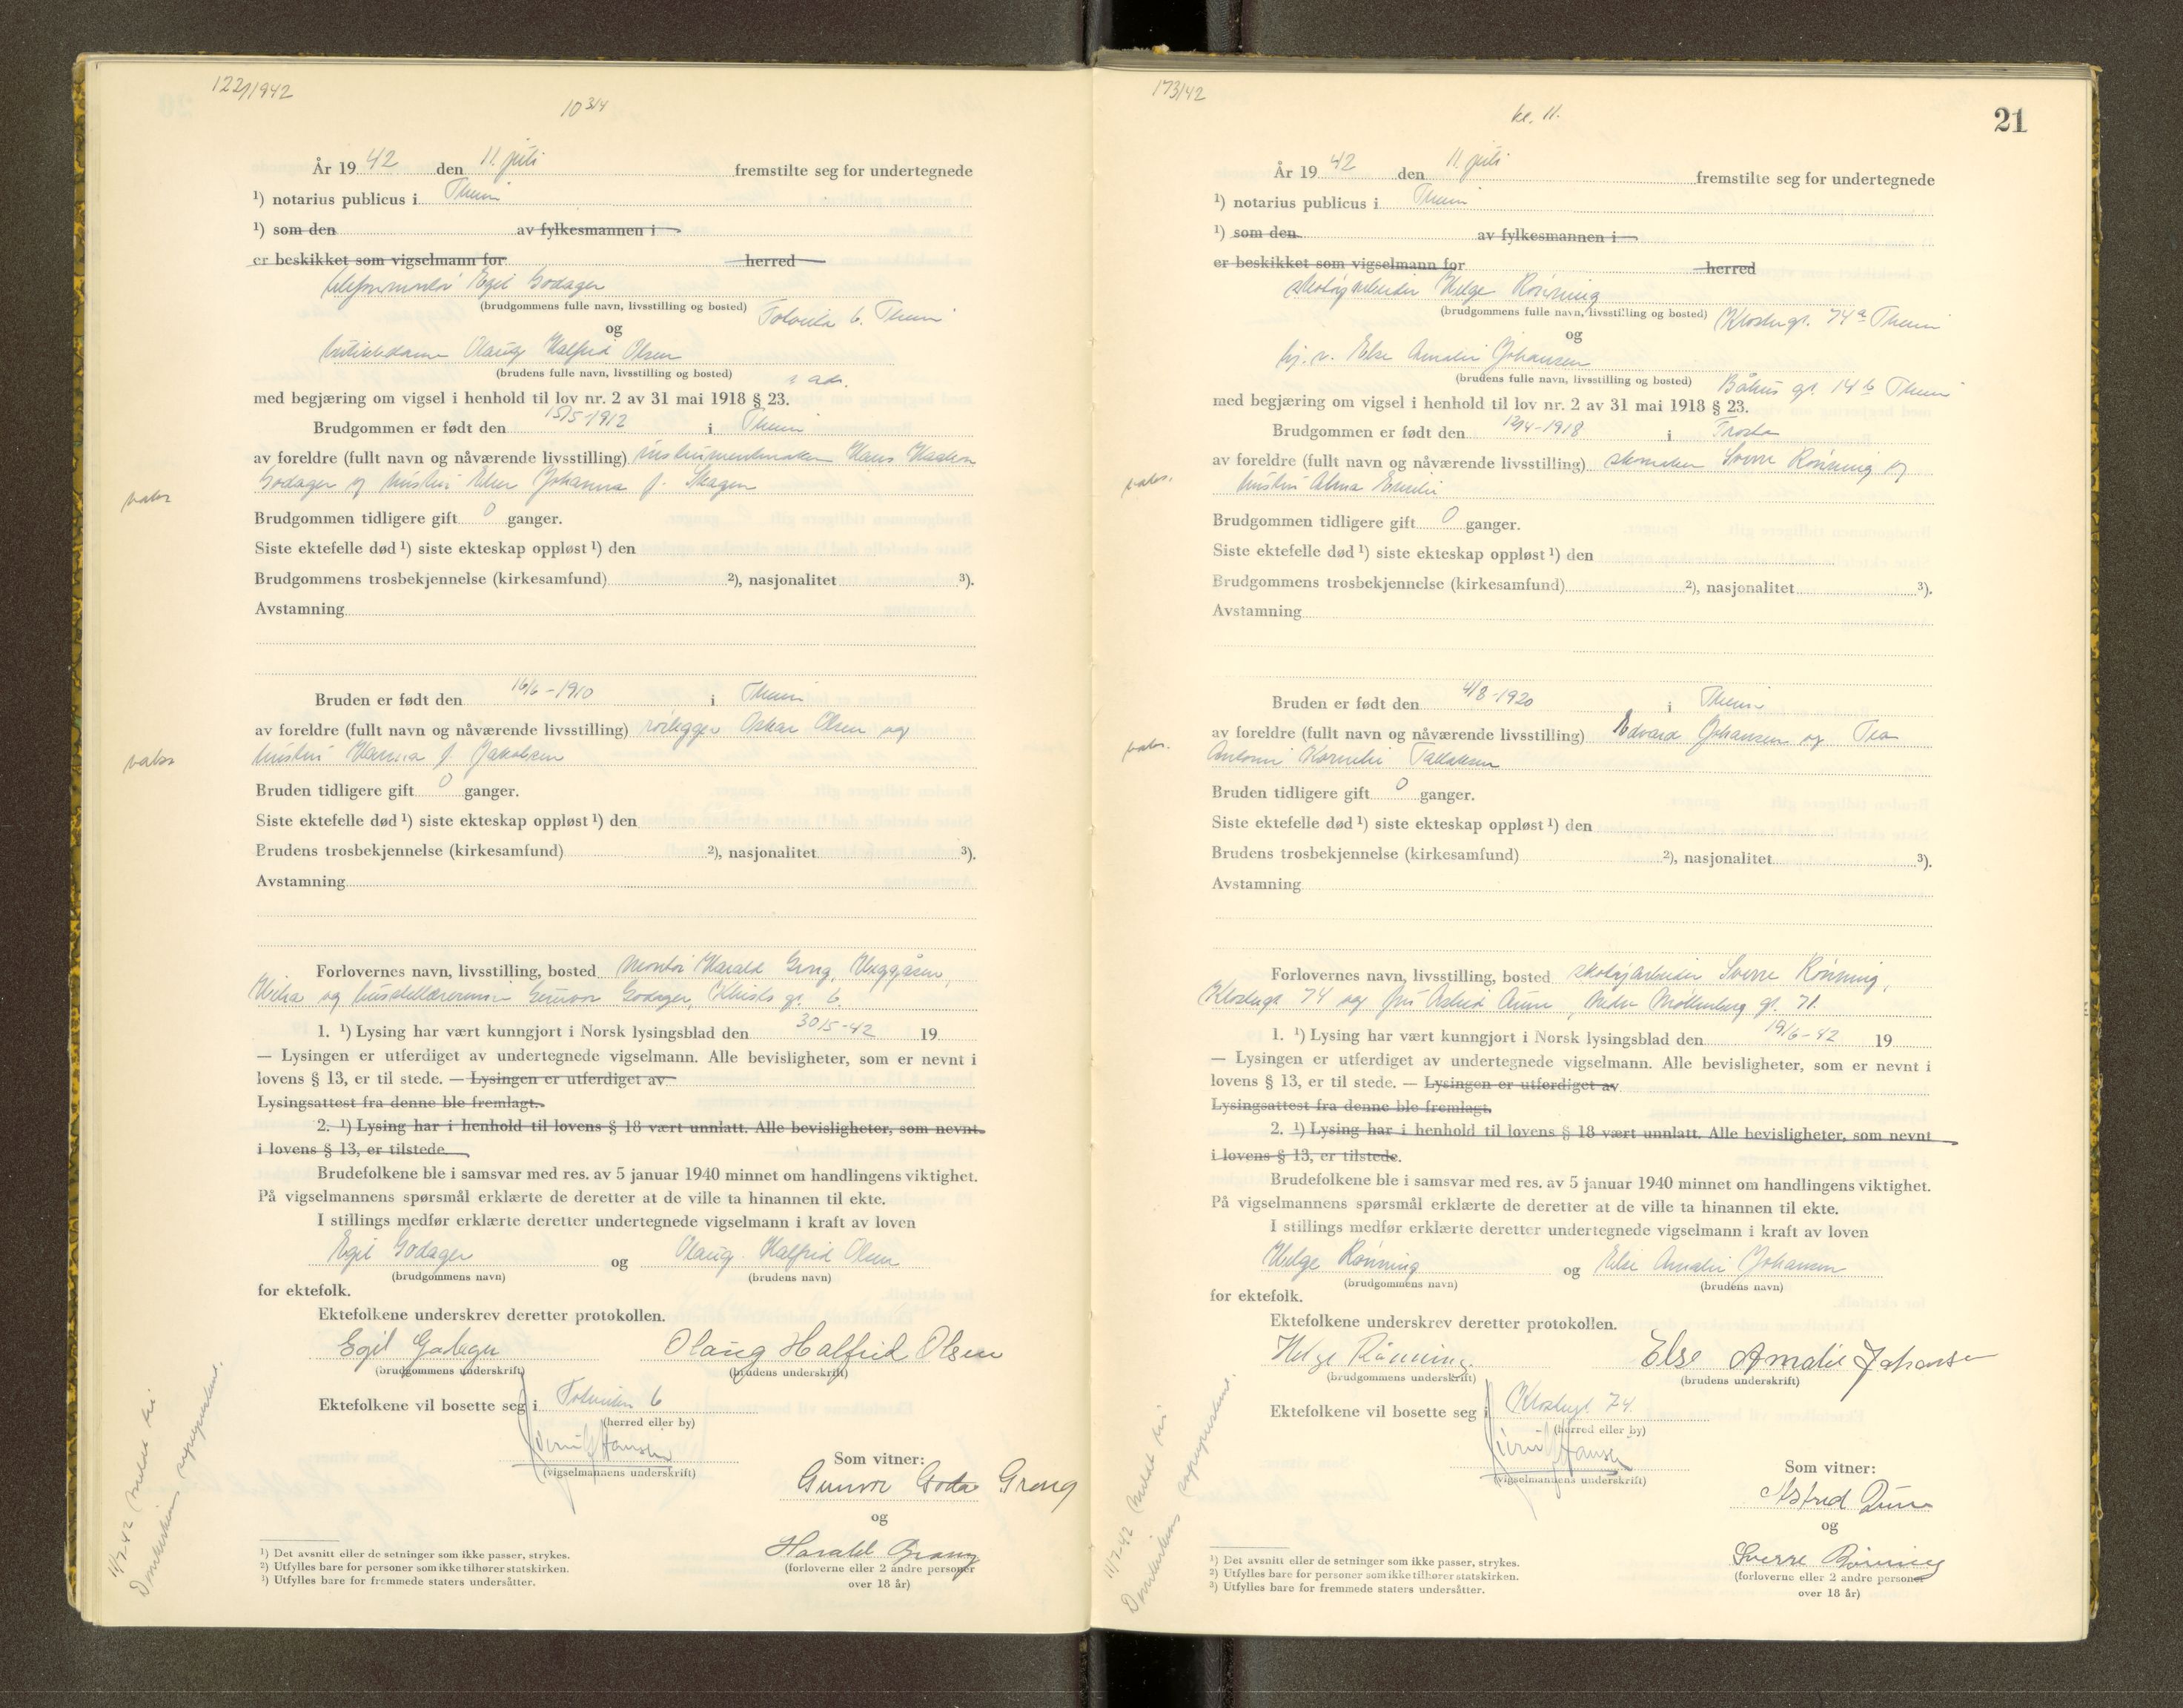 122/1942
10 3/4
År 19 42 den 11. juli fremstilte seg for undertegnede
¹) notarius publicus i Thmm
¹) som den av fylkesmannen i
er beskikket som vigselmann for herred
Egil Godager
(brudgommens fulle navn, livsstilling og bosted)
6. Thmm
og
Olaug Halfrid Olsen
(brudens fulle navn, livsstilling og bosted)
s. adr.
med begjæring om vigsel i henhold til lov nr. 2 av 31 mai 1918 § 23.
Brudgommen er født den 15/5-1912 i Thmm
av foreldre (fullt navn og nåværende livsstilling) instrumentmaker Hans
Godager og hustru Johanna f. Skagen
vaks
Brudgommen tidligere gift 0 ganger.
Siste ektefelle død ¹) siste ekteskap oppløst ¹) den
Brudgommens trosbekjennelse (kirkesamfund) ²), nasjonalitet ³).
Avstamning
Bruden er født den 16/6-1910 i Thmm
av foreldre (fullt navn og nåværende livsstilling) rørlegger Oskar Olsen og
hustru Hanna f. Jakobsen
vaks
Bruden tidligere gift 0 ganger.
Siste ektefelle død ¹) siste ekteskap oppløst ¹) den
Brudens trosbekjennelse (kirkesamfund) ²), nasjonalitet ³).
Avstamning
Forlovernes navn, livsstilling, bosted Montør Harald Grong,
og Gunvor Godager, gt. 6.
1. ¹) Lysing har vært kunngjort i Norsk lysingsblad den 30/5-42 19
— Lysingen er utferdiget av undertegnede vigselmann. Alle bevisligheter, som er nevnt i
lovens § 13, er til stede. — Lysingen er utferdiget av
Lysingsattest fra denne ble fremlagt.
2. ¹) Lysing har i henhold til lovens § 18 vært unnlatt. Alle bevisligheter, som nevnt
i lovens § 13, er tilstede.
Brudefolkene ble i samsvar med res. av 5 januar 1940 minnet om handlingens viktighet.
På vigselmannens spørsmål erklærte de deretter at de ville ta hinannen til ekte.
I stillings medfør erklærte deretter undertegnede vigselmann i kraft av loven
Egil Godager og Olaug Halfrid Olsen
(brudgommens navn) (brudens navn)
for ektefolk.
Ektefolkene underskrev deretter protokollen.
Egil Godager Olaug Halfrid Olsen
(brudgommens underskrift) (brudens underskrift)
Ektefolkene vil bosette seg i 6
(herred eller by)
Hansen
(vigselmannens underskrift)
Som vitner:
Gunvor Goda Grong
og
Harald Grong
(forloverne eller 2 andre personer
over 18 år)
11/7-42 meldt til
Domkirkens
¹) Det avsnitt eller de setninger som ikke passer, strykes.
²) Utfylles bare for personer som ikke tilhører statskirken.
³) Utfylles bare for fremmede staters undersåtter.
173/42
kl. 11.
21
År 19 42 den 11. juli fremstilte seg for undertegnede
¹) notarius publicus i Thmm
¹) som den av fylkesmannen i
er beskikket som vigselmann for herred
skotøyarbeider Helge Rønning
(brudgommens fulle navn, livsstilling og bosted) Klostergt. 74a Thmm
og
hj. v. Else Amalie Johansen
(brudens fulle navn, livsstilling og bosted) Båhus gt. 14 b Thmm
med begjæring om vigsel i henhold til lov nr. 2 av 31 mai 1918 § 23.
Brudgommen er født den 12/4-1918 i
av foreldre (fullt navn og nåværende livsstilling) skomaker Sverre Rønning og
hustru Alma Emelie
vaks.
Brudgommen tidligere gift 0 ganger.
Siste ektefelle død ¹) siste ekteskap oppløst ¹) den
Brudgommens trosbekjennelse (kirkesamfund) ²), nasjonalitet ³).
Avstamning
Bruden er født den 4/8-1920 i Thmm
av foreldre (fullt navn og nåværende livsstilling) Edvard Johansen og Tea
Antonie Kornelie
vaks.
Bruden tidligere gift 0 ganger.
Siste ektefelle død ¹) siste ekteskap oppløst ¹) den
Brudens trosbekjennelse (kirkesamfund) ²), nasjonalitet ³).
Avstamning
Forlovernes navn, livsstilling, bosted skotøyarbeider Sverre Rønning,
Klostergt 74 og fru Astrid Aune, Nedre Møllenberg gt. 71.
1. ¹) Lysing har vært kunngjort i Norsk lysingsblad den 19/6-42 19
— Lysingen er utferdiget av undertegnede vigselmann. Alle bevisligheter, som er nevnt i
lovens § 13, er til stede. — Lysingen er utferdiget av
Lysingsattest fra denne ble fremlagt.
2. ¹) Lysing har i henhold til lovens § 18 vært unnlatt. Alle bevisligheter, som nevnt
i lovens § 13, er tilstede.
Brudefolkene ble i samsvar med res. av 5 januar 1940 minnet om handlingens viktighet.
På vigselmannens spørsmål erklærte de deretter at de ville ta hinannen til ekte.
I stillings medfør erklærte deretter undertegnede vigselmann i kraft av loven
Helge Rønning og Else Amalie Johansen
(brudgommens navn) (brudens navn)
for ektefolk.
Ektefolkene underskrev deretter protokollen.
Helge Rønning. Else Amalie Johansen
(brudgommens underskrift) (brudens underskrift)
Ektefolkene vil bosette seg i Klostergt 74.
(herred eller by)
Hansen
(vigselmannens underskrift)
Som vitner:
Astrid Aune
og
Sverre Rønning
(forloverne eller 2 andre personer
over 18 år)
11/7-42 meldt til
Domkirkens
¹) Det avsnitt eller de setninger som ikke passer, strykes.
²) Utfylles bare for personer som ikke tilhører statskirken.
³) Utfylles bare for fremmede staters undersåtter.